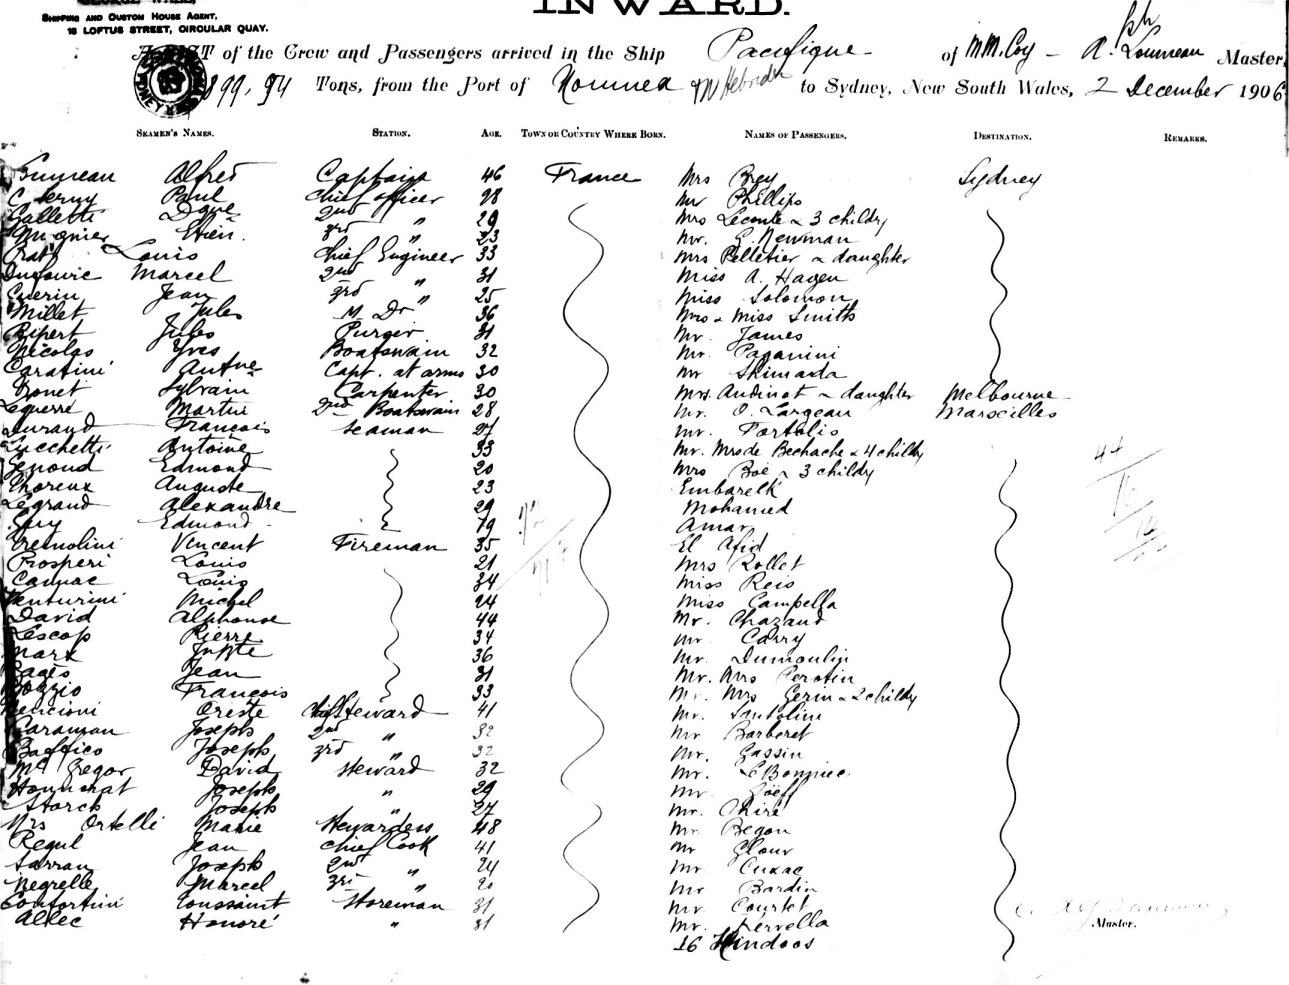 GEORGE
SHIPPING AND CUSTOM HOUSE AGENT,
18 LOFTUS STREET, CIRCULAR QUAY.
INWARD.
A LIST of the Crew and Passengers arrived in the Ship Pacifique of MM. Coy - A. Master,
899,94 Tons, from the Port of Noumea & N Hebrides to Sydney, New South Wales, 2 December 1906
SEAMEN'S NAMES. STATION. AGE. TOWN OR COUNTRY WHERE BORN. NAMES OF PASSENGERS. DESTINATION. REMARKS.
Alfred Captain 46 France Mrs Brey Sydney
Paul Chief officer 28 Mr Phillips
Galletti 2nd " 29 Mrs Lecomte & 3 childy
Mugnier Etien. 3rd " 23 Mr. G. Newman
Louis Chief Engineer 33 Mrs Pelletier & daughter
Marcel 2nd " 31 Miss A. Hagen
Guerin Jean 3rd " 25 Miss Solomon
Millet Jules M. Dr 36 Mrs & Miss Smith
Ripert Jules Purser 31 Mr. James
Nicolas Yves Boatswain 32 Mr. Paganini
Caratini Antne Capt. at arms 30 Mr Shimada
Bonet Sylvain Carpenter 30 Mrs. Audinot & daughter Melbourne
Leguerre Martin 2nd Boatswain 28 Mr. O. Largeau Marseilles
Durand François Seaman 27 Mr. Portalis
Lucchetti Antoine 33 Mr. Mrs de Bechache & 4 childy
Genoud Edmond 20 Mrs Boë & 3 childy
Choreux Auguste 23 Embarelk
Legrand Alexandre 29 Mohamed
Guy Edmond 19 Amar
Tremolini Vincent Fireman 35 El Afid
Prosperi Louis 21 Mrs Rollet
Louis 34 Miss Reis
Venturini Michel 24 Miss Campella
David Alphonse 44 Mr. Chazand
Lescop Pierre 34 Mr. Carry
Marx 36 Mr. Dumoulin
Pagès Jean 31 Mr. Mrs Perotin
Bozzio François 33 Mr. Mrs Gerin & 2 childy
Bencioni Oreste Chief Steward 41 Mr. Santolini
Caraman Joseph 2nd " 32 Mr Barberet
Baffico Joseph 3rd " 32 Mr. Gassin
Mc Gregor David Steward 32 Mr. Le Bonniec
Honnorat Joseph " 29 Mr. Goëff
Storck Joseph " 27 Mr. Chiré
Mrs Ortelli Marie Stewardess 48 Mr. Begon
Regul Jean Chief Cook 41 Mr Glour
Sarran Joseph 2nd " 24 Mr. Cuxac
Negrelle Marcel 3rd " 20 Mr Bardin
Confortini Toussaint Storeman 31 Mr. Courtet
Allec Honoré " 31 Mr. Servella
16 Hindoos
Master.